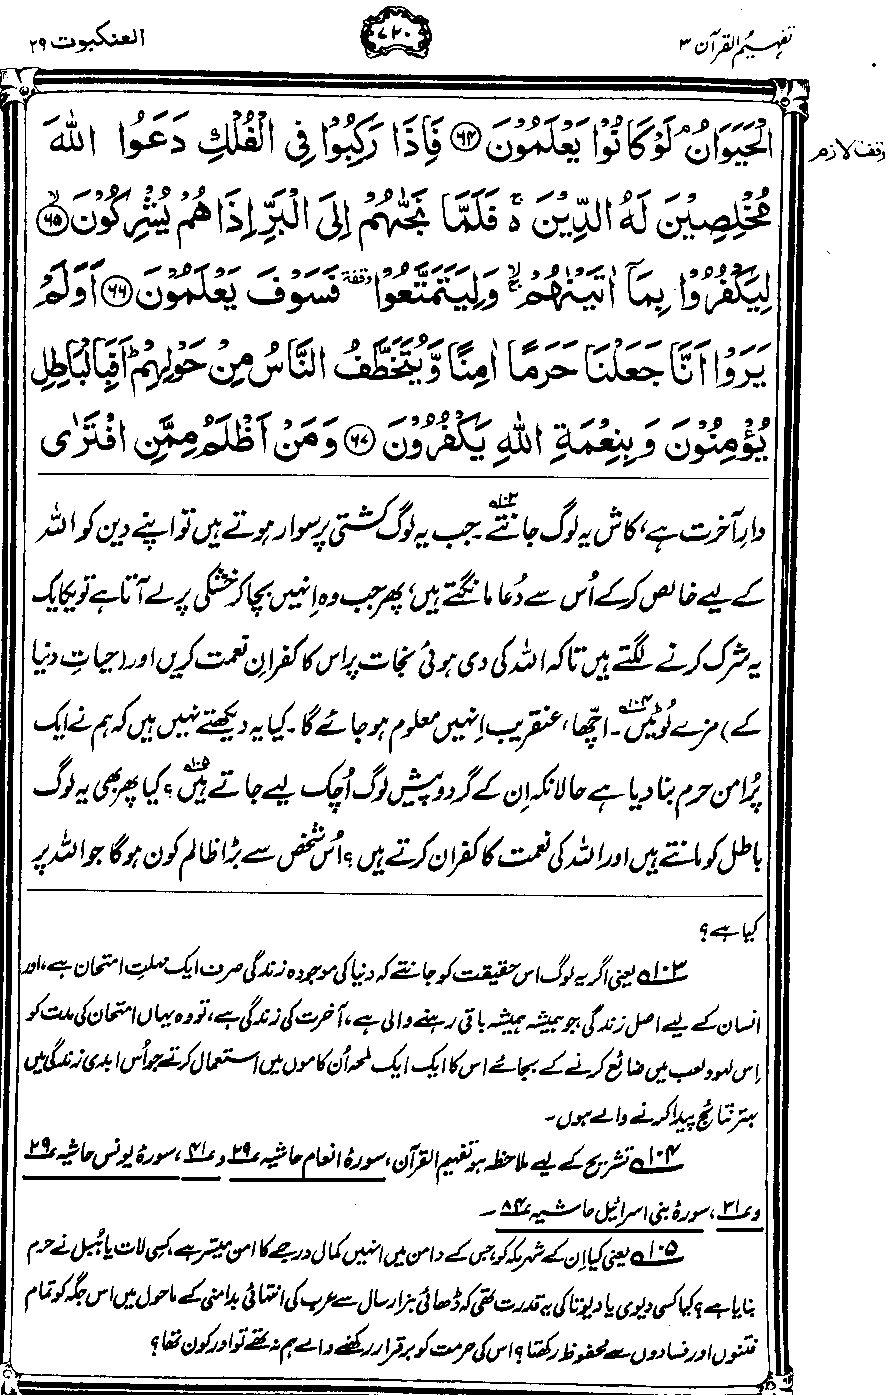 تفہیم القرآن ۳
۷۲۰
العنکبوت ۲۹
الْحَيَوَانُ ۘ لَوْ كَانُوْا يَعْلَمُوْنَ ﴿۶۴﴾ فَاِذَا رَكِبُوْا فِى الْفُلْكِ دَعَوُا اللّٰهَ
وقف لازم
مُخْلِصِيْنَ لَهُ الدِّيْنَ ۚ فَلَمَّا نَجّٰىهُمْ اِلَى الْبَرِّ اِذَا هُمْ يُشْرِكُوْنَ ﴿۶۵﴾ ۙ
لِيَكْفُرُوْا بِمَاۤ اٰتَيْنٰهُمْ ۙ وَلِيَتَمَتَّعُوْا وقفة فَسَوْفَ يَعْلَمُوْنَ ﴿۶۶﴾ اَوَلَمْ
يَرَوْا اَنَّا جَعَلْنَا حَرَمًا اٰمِنًا وَّيُتَخَطَّفُ النَّاسُ مِنْ حَوْلِهِمْ ؕ اَفَبِالْبَاطِلِ
يُؤْمِنُوْنَ وَبِنِعْمَةِ اللّٰهِ يَكْفُرُوْنَ ﴿۶۷﴾ وَمَنْ اَظْلَمُ مِمَّنِ افْتَرٰى
دارِ آخرت ہے، کاش یہ لوگ جانتے۱۰۳۔ جب یہ لوگ کشتی پر سوار ہوتے ہیں تو اپنے دین کو اللہ
کے لیے خالص کر کے اُس سے دُعا مانگتے ہیں، پھر جب وہ اِنہیں بچا کر خشکی پر لے آتا ہے تو یکایک
یہ شرک کرنے لگتے ہیں تاکہ اللہ کی دی ہوئی نجات پر اس کا کفرانِ نعمت کریں اور (حیاتِ دنیا
کے) مزے لُوٹیں۱۰۴۔ اچھا، عنقریب اِنہیں معلوم ہو جائے گا۔ کیا یہ دیکھتے نہیں ہیں کہ ہم نے ایک
پُرامن حرم بنا دیا ہے حالانکہ اِن کے گردوپیش لوگ اُچک لیے جاتے ہیں۱۰۵؟ کیا پھر بھی یہ لوگ
باطل کو مانتے ہیں اور اللہ کی نعمت کا کفران کرتے ہیں؟ اُس شخص سے بڑا ظالم کون ہوگا جو اللہ پر
کیا ہے؟
۱۰۳ یعنی اگر یہ لوگ اس حقیقت کو جانتے کہ دنیا کی موجودہ زندگی صرف ایک مہلتِ امتحان ہے، اور
انسان کے لیے اصل زندگی جو ہمیشہ ہمیشہ باقی رہنے والی ہے، آخرت کی زندگی ہے، تو وہ یہاں امتحان کی مدت کو
اِس لہو و لعب میں ضائع کرنے کے بجائے اس کا ایک ایک لمحہ اُن کاموں میں استعمال کرتے جو اُس ابدی زندگی میں
بہتر نتائج پیدا کرنے والے ہوں۔
۱۰۴ تشریح کے لیے ملاحظہ ہو تفہیم القرآن، سورۂ انعام حاشیہ ۲۹ و ۴۱، سورۂ یونس حاشیہ ۲۹
و ۳۱، سورۂ بنی اسرائیل حاشیہ ۸۴۔
۱۰۵ یعنی کیا اِن کے شہر مکہ کو، جس کے دامن میں انہیں کمال درجے کا امن میسر ہے، کسی لات یا ہُبل نے حرم
بنایا ہے؟ کیا کسی دیوی یا دیوتا کی یہ قدرت تھی کہ ڈھائی ہزار سال سے عرب کی انتہائی بدامنی کے ماحول میں اس جگہ کو تمام
فتنوں اور فسادوں سے محفوظ رکھتا؟ اس کی حرمت کو برقرار رکھنے والے ہم نہ تھے تو اور کون تھا؟